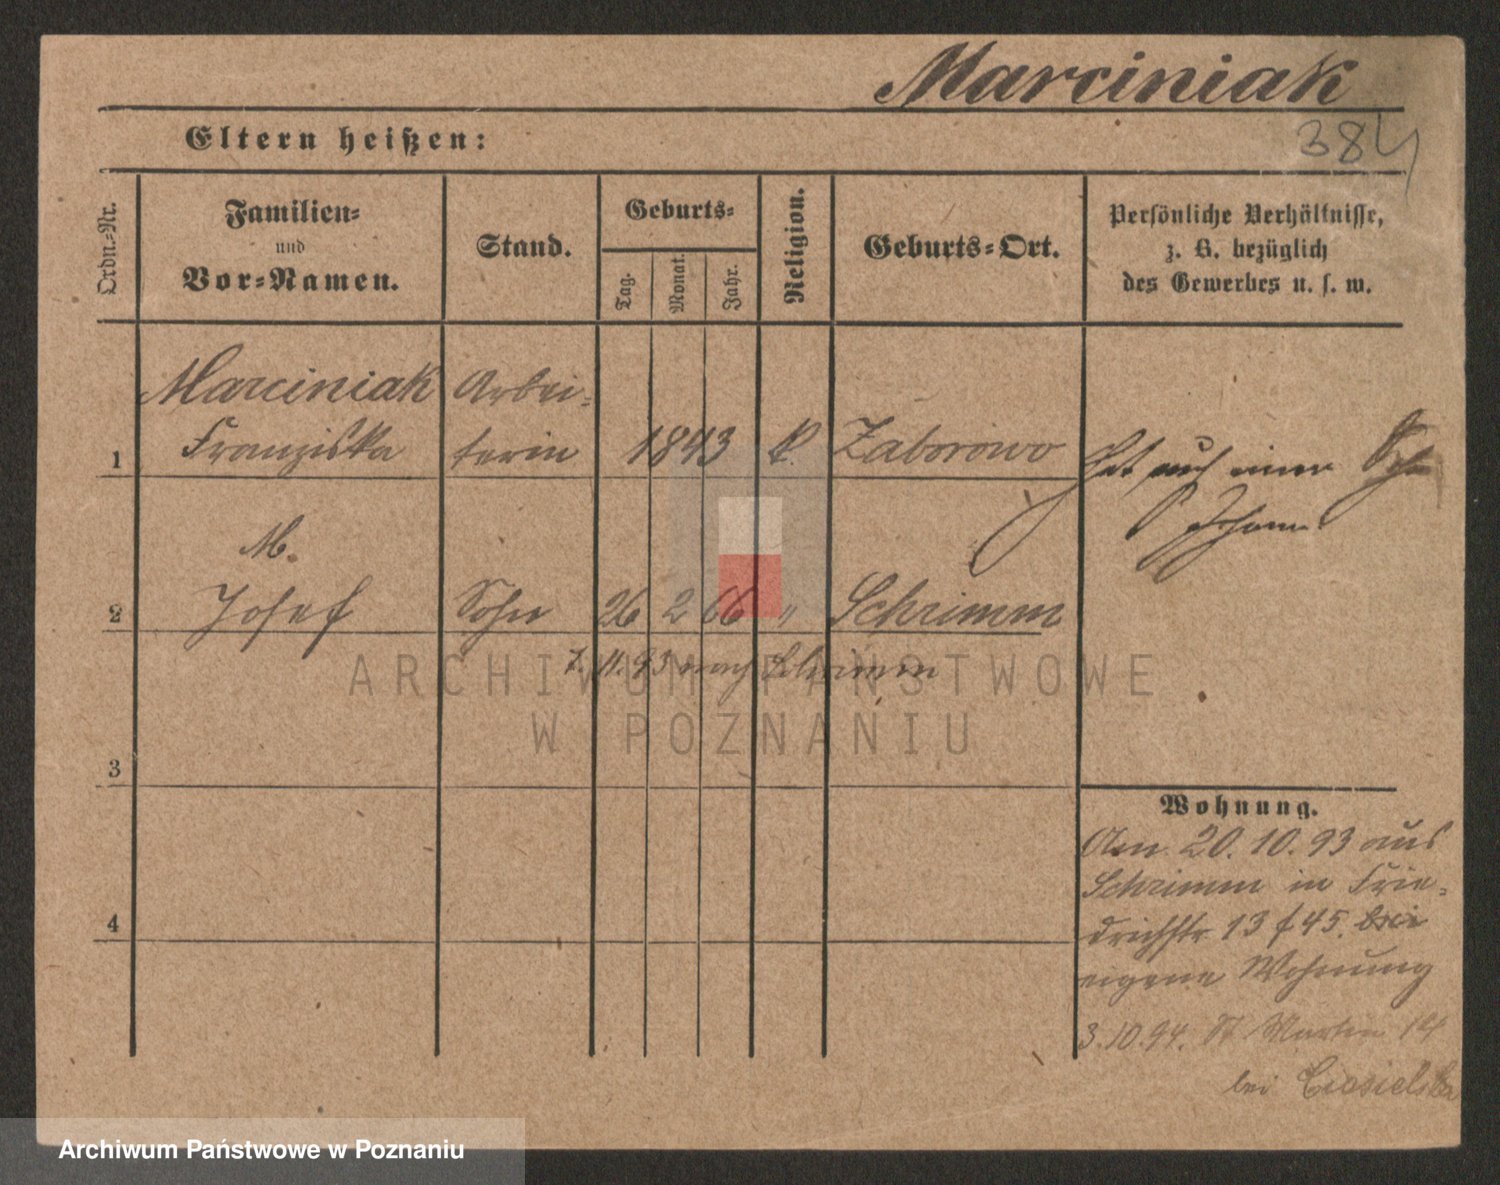 Marciniak
384
Eltern heißen:
Ordn.-Nr.
Familien-
und
Vor-Namen.
Stand.
Geburts-
Tag.
Monat.
Jahr.
Religion.
Geburts-Ort.
Persönliche Verhältnisse,
z. B. bezüglich
des Gewerbes u. s. w.
1
Marciniak
Franziska
Arbei-
terin
1843
k.
Zaborowo
Hat auch einen Sohn
Johann
2
M.
Josef
Sohn
26 2 66 "
Schrimm
7. 11. 93 nach Schrimm
3
4
Wohnung.
Am 20. 10. 93 aus
Schrimm in Frie-
drichstr 13 f 45. bei
eigene Wohnung
3. 10. 94. St Martin 14
bei
ARCHIWUM PAŃSTWOWE
W POZNANIU
Archiwum Państwowe w Poznaniu